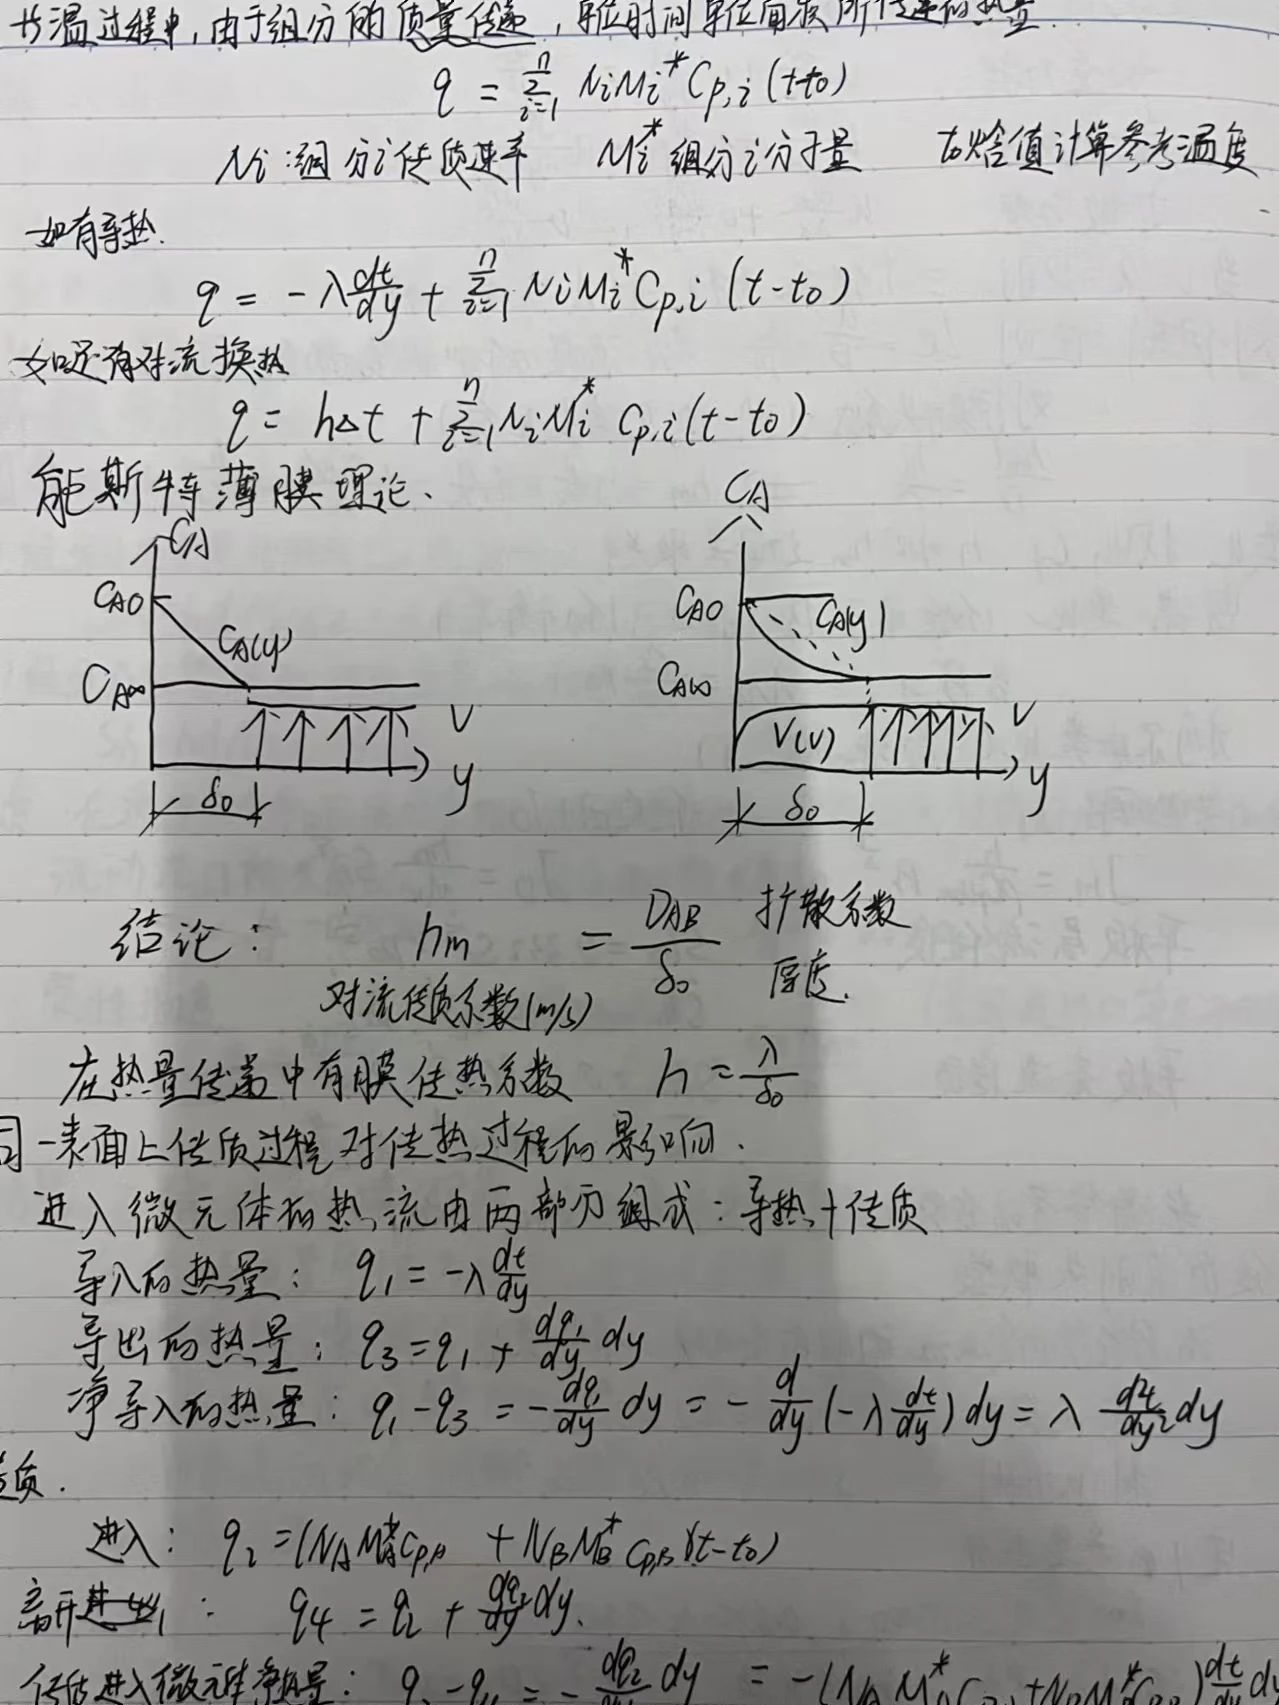 等温过程中,由于组分的质量传递,单位时间单位面积所传递的热量.
q = Σ_{i=1}^{n} N_i M_i^* C_{p,i} (t-t_0)
N_i:组分i传质速率 M_i^* 组分i分子量 t_0焓值计算参考温度
如有导热.
q = -λ dt/dy + Σ_{i=1}^{n} N_i M_i^* C_{p,i} (t-t_0)
如还有对流换热
q = hΔt + Σ_{i=1}^{n} N_i M_i^* C_{p,i} (t-t_0)
能斯特薄膜理论、
C_A
C_{A0}
C_A(y)
C_{A∞}
V
y
δ_0
C_A
C_{A0}
C_A(y)
C_{A∞}
V(V)
V
y
δ_0
结论: h_m = D_{AB}/δ_0 扩散系数
厚度.
对流传质系数(m/s)
在热量传递中有膜传热系数 h = λ/δ_0
同一表面上传质过程对传热过程的影响.
进入微元体的热流由两部分组成:导热+传质
导入的热量: q_1 = -λ dt/dy
导出的热量: q_3 = q_1 + dq_1/dy dy
净导入的热量: q_1-q_3 = -dq_1/dy dy = -d/dy (-λ dt/dy) dy = λ d²t/dy² dy
传质.
进入: q_2 = (N_A M_A^* C_{p,A} + N_B M_B^* C_{p,B})(t-t_0)
离开: q_4 = q_2 + dq_2/dy dy.
传质进入微元体净热量: q_2-q_4 = -dq_2/dy dy = -(N_A M_A^* C_{p,A} + N_B M_B^* C_{p,B}) dt/dy dy